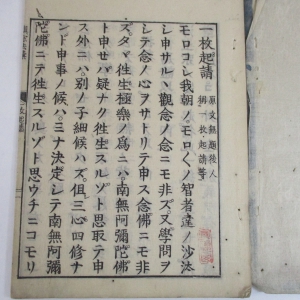 一枚起請
原文無題後人
稱一枚起請等
モロコシ我朝ノモロ〱ノ智者達ノ沙汰
シ申サル丶觀念ノ念ニモ非ズ又學問ヲ
シテ念ノ心ヲサトリテ申ス念佛ニモ非
ズタヾ徃生極樂ノ爲ニハ南無阿彌陀佛
ト申セバ疑ナク徃生スルゾト思取テ申
ス外ニハ別ノ子細候ハズ但三心四修ナ
ンド申事ノ候ハミナ決定シテ南無阿彌
陀佛ニテ徃生スルゾト思ウチニコモリ